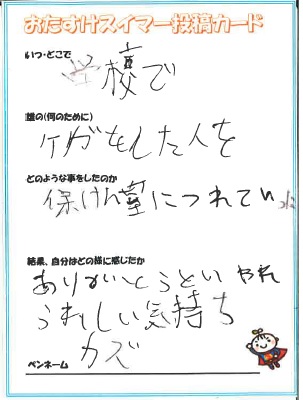 おたすけスイマー投稿カード
いつ・どこで
学校で
誰の(何のために)
ケガをした人を
どのような事をしたのか
保けん室につれてい
結果、自分はどの様に感じたか
ありがとうといわれ
うれしい気持ち
カズ
ペンネーム